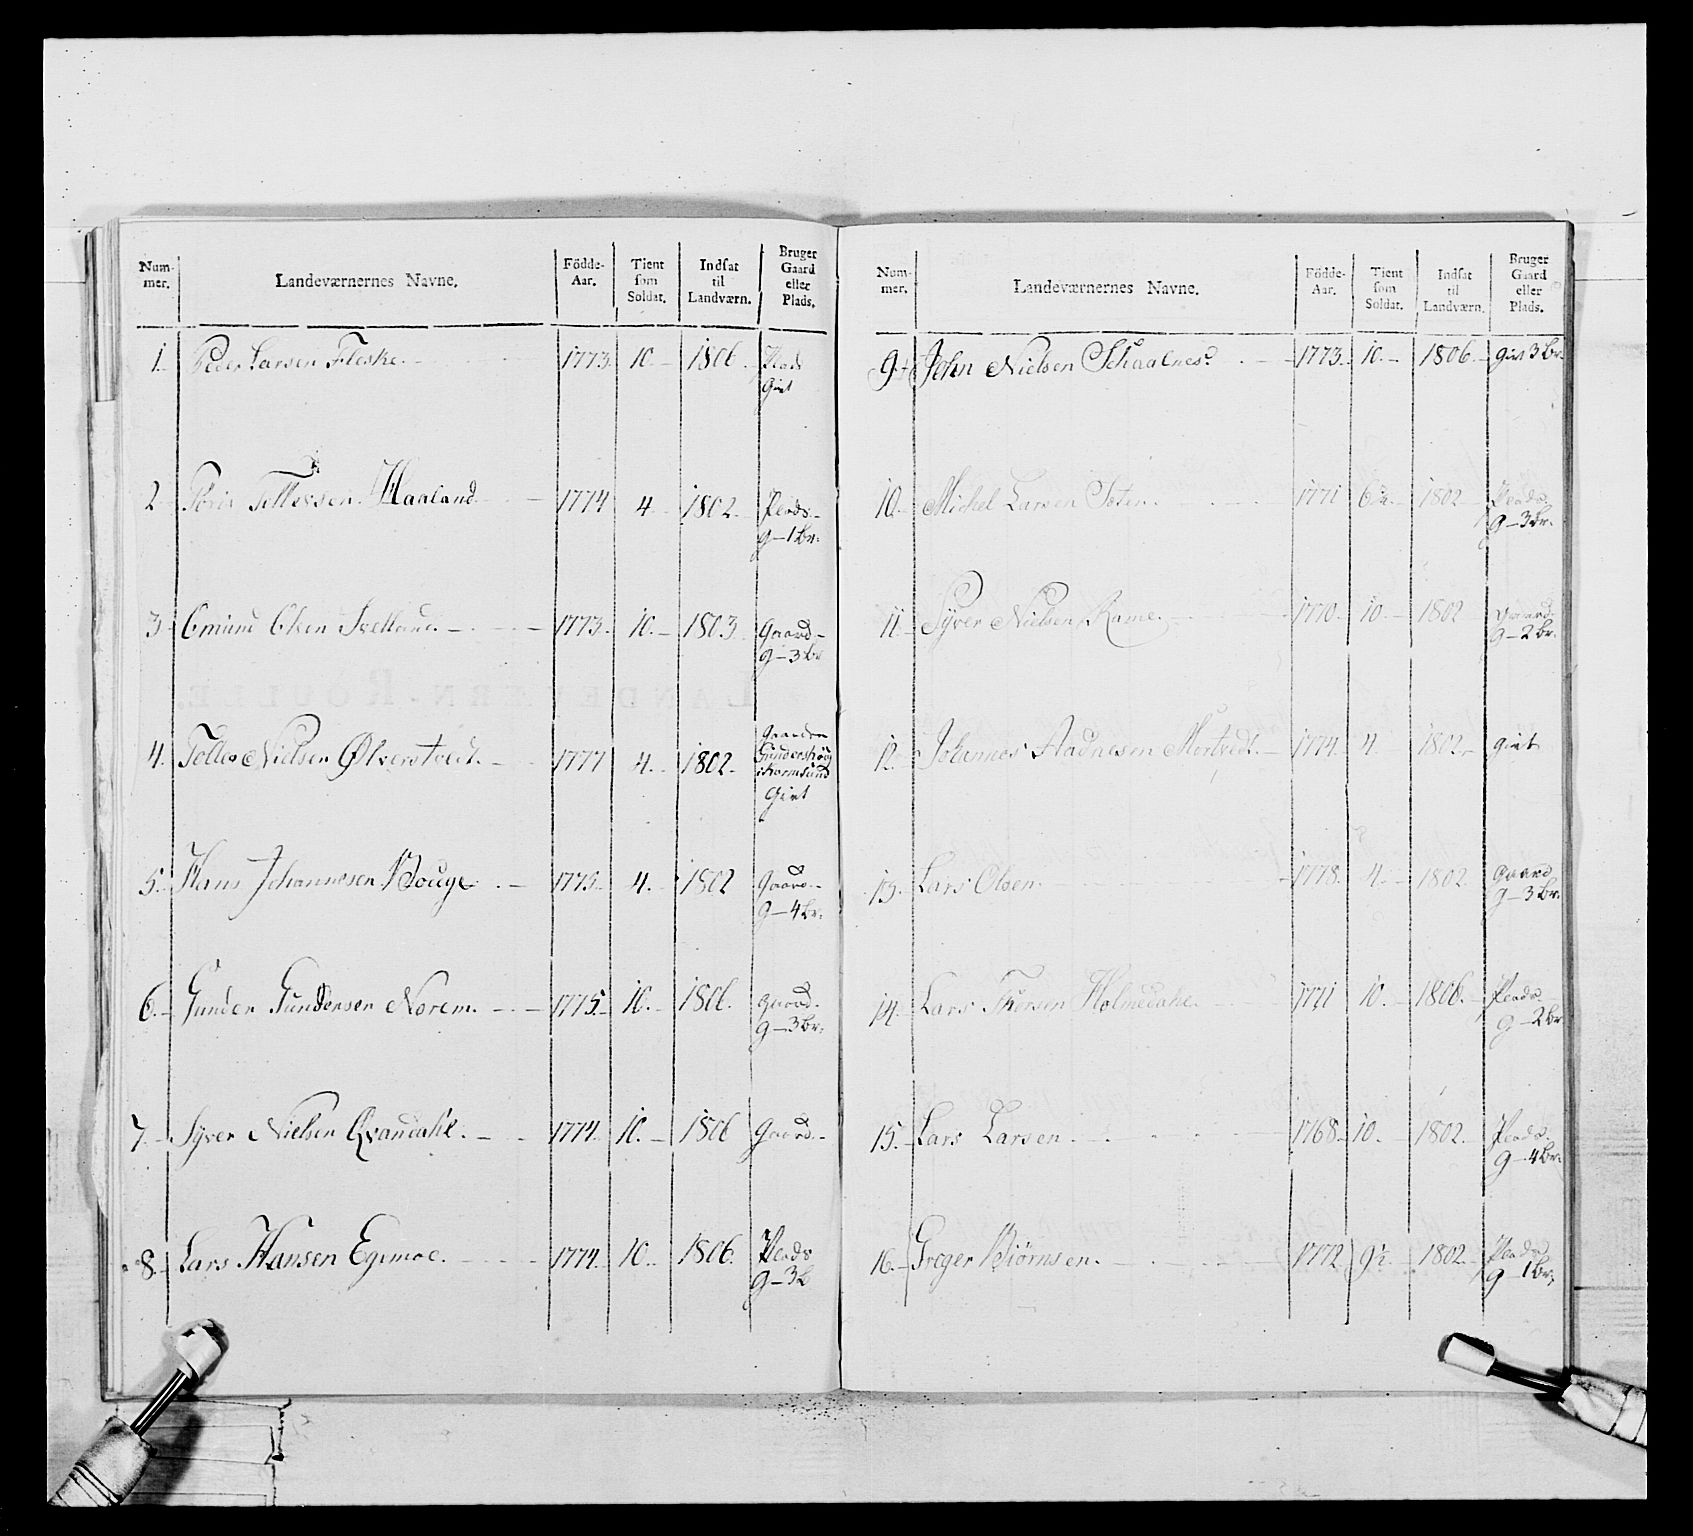 Num-
mer.
Landeværnernes Navne.
Födde-
Aar.
Tient
som
Soldat.
Indsat
til
Landværn.
Bruger
Gaard
eller
Plads.
1. Peder Larsen Fleske. 1773. 10. 1806. Plads
Givt
2 Tollevsen Haaland 1774 4 1802. Plads
g-1br.
3 Omund Olsen Svelland. 1773. 10. 1803. Gaard
g-3br
Gaarden
4. Nielsen Ølverstvedt. 1777 4. 1802. Gundersköy
i Karmsund
Givt
5. Hans Johannesen Bouge 1775. 4. 1802 Gaard
g-4br.
6. Gunder Gundersen Norem. 1775. 10. 1806. gaard.
g-3br.
7. Syver Nielsen Qvandahl. 1774. 10. 1806 Gaard
8. Lars Hansen Egemoe. 1774. 10. 1806. Plads
g-3b
Num-
mer.
Landeværnernes Navne.
Födde-
Aar.
Tient
som
Soldat.
Indsat
til
Landværn.
Bruger
Gaard
eller
Plads.
9. John Nielsen Schaalnes 1773. 10. 1806. givt 3br
10. Michel Larsen 1771 6½. 1802 Plads
g-3br.
11. Syver Nielsen Rame. 1770. 10. 1802 Gaard
g-2br.
12. Johannes Aadnesen Mortvedt. 1774. 4. 1802. givt
13. Lars Olsen. 1778. 4. 1802. Gaard
g-3br.
14. Lars Thorsen Holmedahl. 1771 10. 1806. Plads.
g-2br
15. Lars Larsen. 1768. 10. 1802. Plads.
g-4br.
16. Greger Biörnsen. 1772. 9½. 1802. Plads
g-1br.